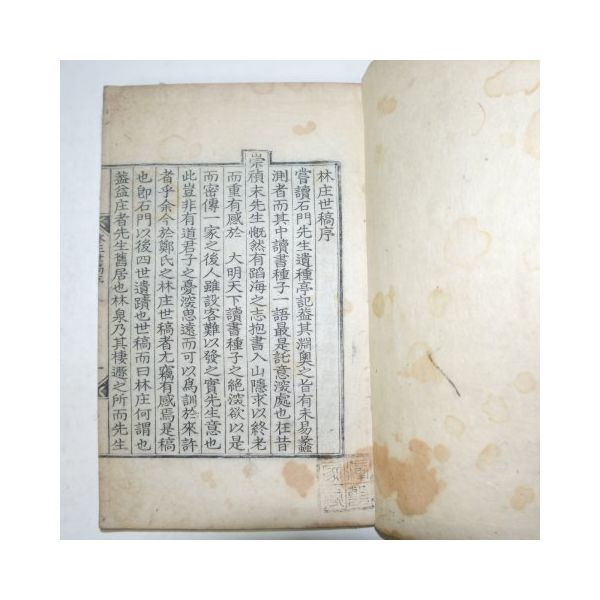 林庄世稿序
嘗讀石門先生遺種亭記益其淵奧之旨有未易蠡
測者而其中讀書種子一語最是託意深處也在昔
崇禎末先生慨然有蹈海之志抱書入山隱求以終老
而重有感於 大明天下讀書種子之絶深欲以是
而密傳一家之後人雖設客難以發之實先生意也
此豈非有道君子之憂深思遠而可以爲訓於來許
者乎余今於鄭氏之林庄世稿者尤竊有感焉是稿
也卽石門以後四世遺蹟也世稿而曰林庄何謂也
蓋益庄者先生舊居也林泉乃其棲遯之所而先生